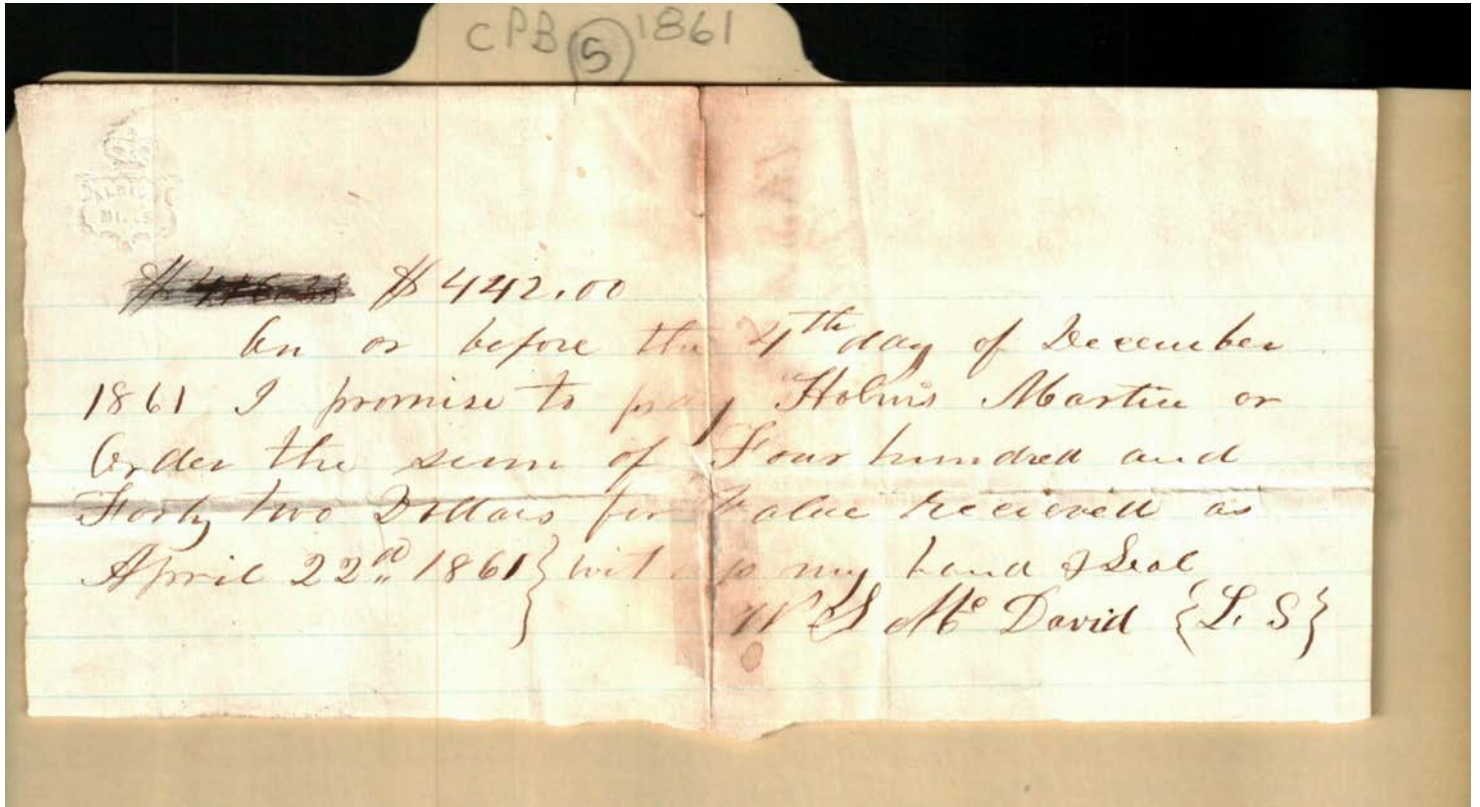 CPB 5 1861
ALBION
MILLS
$ $442.00
On or before the 4th day of December
1861 I promise to pay Holmis Martin or
Order the sum of Four hundred and
Forty two Dollars for Value Recieved as
April 22d 1861} witness my hand & Seal
W McDavid {L. S}